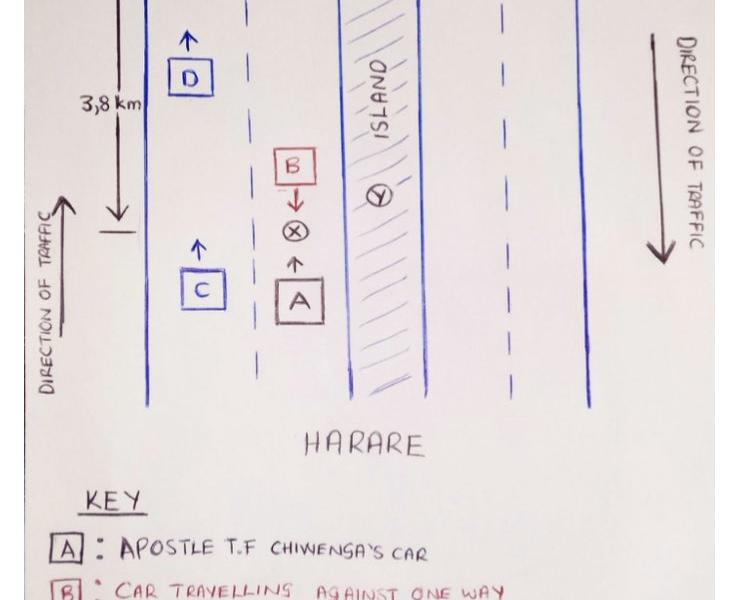 D
3,8 km
ISLAND
DIRECTION OF TRAFFIC
B
Y
X
DIRECTION OF TRAFFIC
C
A
HARARE
KEY
A : APOSTLE T.F CHIWENGA'S CAR
B : CAR TRAVELLING AGAINST ONE WAY